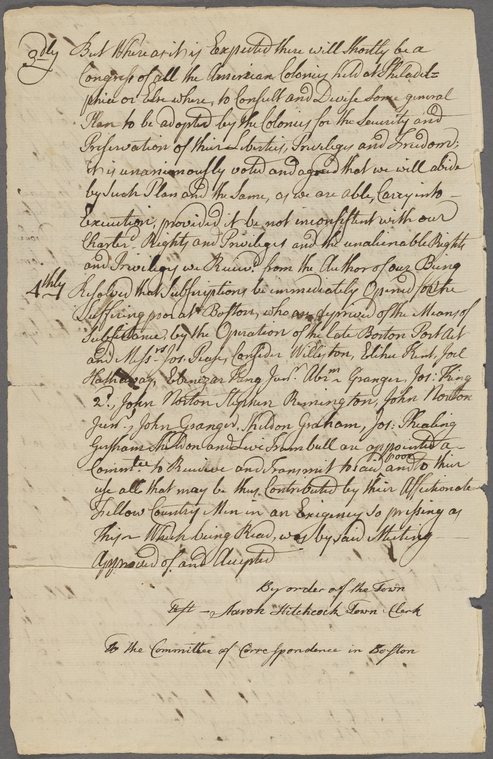 3dly But Whereas it is Expected there will Shortly be a
Congress of all the American Colonies held at Philadel=
phia or Else where, to Consult and Devise Some general
Plan to be adopted by the Colonies for the Security and
Preservation of their Liberties, Privileges and Freedom;
it is unanimously voted and agreed that we will abide
by Such Plan and the Same, as we are able, Carry into
Execution, provided it be not inconsistent with our
Charter Rights and Privileges and the unalinable Rights
and Privileges we Receivd from the Author of our Being
4thly Resolved that Subscriptions be immediately Opened for the
Suffering poor at Boston, who are deprived of the Means of
Subsistance, by the Operation of the late Boston Port Act
and Messrs Jos: Consider Williston, Elihu Kent, Joel
Hathaway, Ebenezar King Junr, Abrm Granger, Jos: King
2d, John Norton Stephen Remington, John Norton
Junr, John Granger, Sheldon Graham, Jos:
Gersham Sheldon and Levi Trumbull are appointed a
Commtee to Receive and Transmit to said poor and to their
use all that may be thus Contributed by their Affectionate
Fellow Country Men in an Exigency So pressing as
this Which being Read, was by said Meeting
Approved of and Accepted
By order of the Town
Test Aaron Hitchcock Town Clerk
To the Committee of Correspondence in Boston